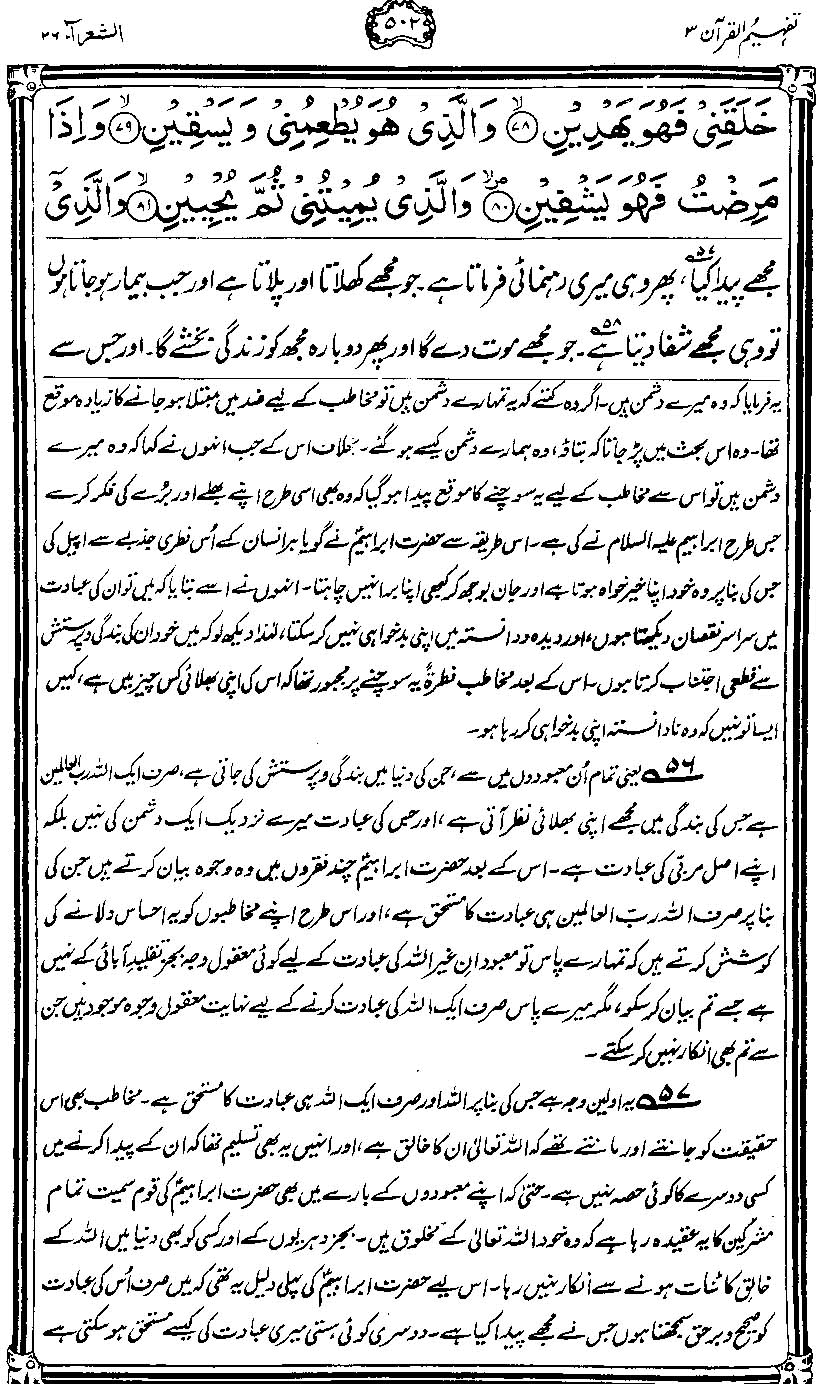 تفہیم القرآن ۳
۵۰۲
الشعرآء ۲۶
خَلَقَنِیْ فَهُوَ یَهْدِیْنِ ﴿۷۸﴾ وَالَّذِیْ هُوَ یُطْعِمُنِیْ وَ یَسْقِیْنِ ﴿۷۹﴾ وَ اِذَا
مَرِضْتُ فَهُوَ یَشْفِیْنِ ﴿۸۰﴾ وَالَّذِیْ یُمِیْتُنِیْ ثُمَّ یُحْیِیْنِ ﴿۸۱﴾ وَالَّذِیْۤ
مجھے پیدا کیا،۵۷ پھر وہی میری رہنمائی فرماتا ہے۔ جو مجھے کھلاتا اور پلاتا ہے اور جب بیمار ہو جاتا ہوں
تو وہی مجھے شفا دیتا ہے۔۵۸ جو مجھے موت دے گا اور پھر دوبارہ مجھ کو زندگی بخشے گا۔ اور جس سے
یہ فرمایا کہ وہ میرے دشمن ہیں۔ اگر وہ کہتے کہ یہ تمہارے دشمن ہیں تو مخاطب کے لیے ضد میں مبتلا ہو جانے کا زیادہ موقع
تھا۔ وہ اس بحث میں پڑ جاتا کہ بتاؤ، وہ ہمارے دشمن کیسے ہو گئے۔ بخلاف اس کے جب انہوں نے کہا کہ وہ میرے
دشمن ہیں تو اس سے مخاطب کے لیے یہ سوچنے کا موقع پیدا ہو گیا کہ وہ بھی اسی طرح اپنے بھلے اور بُرے کی فکر کرے
جس طرح ابراہیم علیہ السلام نے کی ہے۔ اس طریقہ سے حضرت ابراہیمؑ نے گویا ہر انسان کے اُس فطری جذبے سے اپیل کی
جس کی بنا پر وہ خود اپنا خیر خواہ ہوتا ہے اور جان بوجھ کر کبھی اپنا برا نہیں چاہتا۔ انہوں نے اسے بتایا کہ میں تو ان کی عبادت
میں سراسر نقصان دیکھتا ہوں، اور دیدہ و دانستہ میں اپنی بدخواہی نہیں کر سکتا، لہٰذا دیکھ لو کہ میں خود ان کی بندگی و پرستش
سے قطعی اجتناب کرتا ہوں۔ اس کے بعد مخاطب فطرۃً یہ سوچنے پر مجبور تھا کہ اس کی اپنی بھلائی کس چیز میں ہے، کہیں
ایسا تو نہیں کہ وہ نادانستہ اپنی بدخواہی کر رہا ہو۔
۵۶ یعنی تمام اُن معبودوں میں سے، جن کی دنیا میں بندگی و پرستش کی جاتی ہے، صرف ایک اللہ رب العالمین
ہے جس کی بندگی میں مجھے اپنی بھلائی نظر آتی ہے، اور جس کی عبادت میرے نزدیک ایک دشمن کی نہیں بلکہ
اپنے اصل مربّی کی عبادت ہے۔ اس کے بعد حضرت ابراہیمؑ چند فقروں میں وہ وجوہ بیان کرتے ہیں جن کی
بنا پر صرف اللہ ربّ العالمین ہی عبادت کا مستحق ہے، اور اس طرح اپنے مخاطبوں کو یہ احساس دلانے کی
کوشش کرتے ہیں کہ تمہارے پاس تو معبودانِ غیر اللہ کی عبادت کے لیے کوئی معقول وجہ بجز تقلیدِ آبائی کے نہیں
ہے جسے تم بیان کر سکو، مگر میرے پاس صرف ایک اللہ کی عبادت کرنے کے لیے نہایت معقول وجوہ موجود ہیں جن
سے تم بھی انکار نہیں کر سکتے۔
۵۷ یہ اولین وجہ ہے جس کی بنا پر اللہ اور صرف ایک اللہ ہی عبادت کا مستحق ہے۔ مخاطب بھی اس
حقیقت کو جانتے اور مانتے تھے کہ اللہ تعالیٰ ان کا خالق ہے، اور انہیں یہ بھی تسلیم تھا کہ ان کے پیدا کرنے میں
کسی دوسرے کا کوئی حصہ نہیں ہے۔ حتیٰ کہ اپنے معبودوں کے بارے میں بھی حضرت ابراہیمؑ کی قوم سمیت تمام
مشرکین کا یہ عقیدہ رہا ہے کہ وہ خود اللہ تعالیٰ کے مخلوق ہیں۔ بجز دہریوں کے اور کسی کو بھی دنیا میں اللہ کے
خالق کائنات ہونے سے انکار نہیں رہا۔ اس لیے حضرت ابراہیمؑ کی پہلی دلیل یہ تھی کہ میں صرف اُس کی عبادت
کو صحیح و برحق سمجھتا ہوں جس نے مجھے پیدا کیا ہے۔ دوسری کوئی ہستی میری عبادت کی کیسے مستحق ہو سکتی ہے